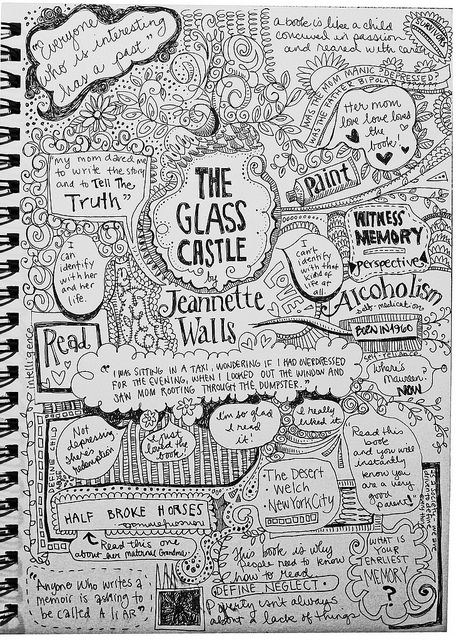 "Everyone
who is interesting
has a past."
a book is like a child
concieved in passion
and reared with care
SURVIVORS
WAS THE MOM MANIC DEPRESSED?
WAS THE FATHER BIPOLAR?
Her mom
love love loves
the
book
"my mom dared me
to write the story
and to Tell The
Truth"
THE
GLASS
CASTLE
by
Jeannette
Walls
Paint
WITNESS
MEMORY
perspective
I
can
identify
with her
and her
life.
I
can't
identify
with that
kind of
life at
all.
LOVE
Alcoholism
self-medication
BORN IN 1960
self-reliance
Read
intelligence
where's
Maureen
NOW
"I WAS SITTING IN A TAXI, WONDERING IF I HAD OVERDRESSED
FOR THE EVENING, WHEN I LOOKED OUT THE WINDOW AND
SAW MOM ROOTING THROUGH THE DUMPSTER."
Not
depressing
there's
redemption
I just
loved the
book!
I'm so glad
I read
it!
I really
liked it
"Read this
book
and you will
instantly
know you
are a very
good
parent"
DEFINE CHILD
The Desert
Welch
New York City
HALF BROKE HORSES
Read this one
about her maternal Grandma
This book is why
people need to know
how to read
DEFINE NEGLECT
Poverty isn't always
about a lack of things
WHAT IS
YOUR
EARLIEST
MEMORY
?
"Anyone who writes a
memoir is asking to
be called A LIAR"